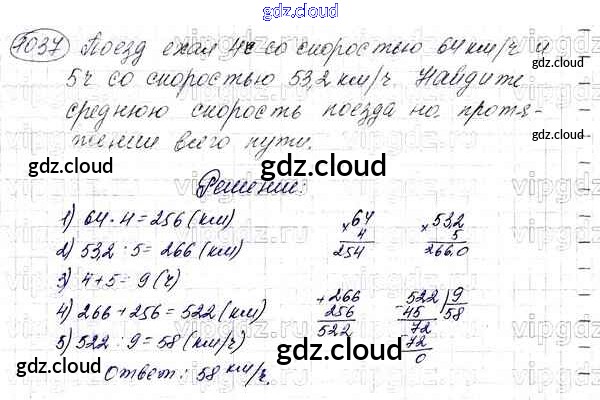 gdz.cloud
1037 Поезд ехал 4ч со скоростью 64 км/ч и
5ч со скоростью 53,2 км/ч. Найдите
среднюю скорость поезда на протя-
жении всего пути.
gdz.cloud gdz.cloud gdz.cloud
Решение:
1) 64 · 4 = 256 (км)
2) 53,2 · 5 = 266 (км)
3) 4 + 5 = 9 (ч)
4) 266 + 256 = 522 (км)
5) 522 : 9 = 58 (км/ч)
Ответ: 58 км/ч.
× 64
4
254
× 53,2
5
266,0
+ 266
256
522
- 522 9
45 58
- 72
72
0
gdz.cloud gdz.cloud gdz.cloud
gdz.cloud gdz.cloud gdz.cloud
gdz.cloud